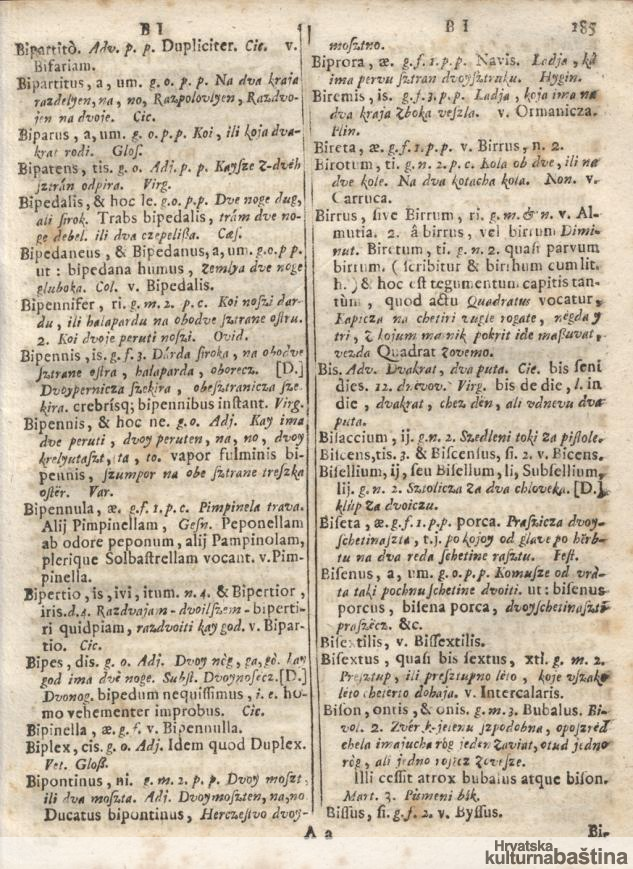 B I
Bipartitò. Adv. p. p. Dupliciter. Cic. v.
Bifariam.
Bipartitus, a, um. g. o. p. p. Na dva kraja
razdelyen, na, no, Razpolovlyen, Razdvo-
jen na dvoje. Cic.
Biparus, a, um. g. o. p. p. Koi, ili koja dva-
krat rodi. Glos.
Bipatens, tis. g. o. Adj. p. p. Kaysze z-dvéh
sztrán odpira. Virg.
Bipedalis, & hoc le. g. o. p. p. Dve noge dug,
ali sirok. Trabs bipedalis, trám dve no-
ge debel. ili dva czepelissa. Cæs.
Bipedaneus, & Bipedanus, a, um. g. o. p p.
ut: bipedana humus, zemlya dve noge
gluboka. Col. v. Bipedalis.
Bipennifer, ri. g. m. 2. p. c. Koi noszi dar-
du, ili halapardu na obodve sztrane ostru.
2. Koi dvoje peruti noszi. Ovid.
Bipennis, is. g. f. 3. Dárda siroka, na obodve
sztrane ostra, halaparda, oborecz. [D.]
Dvoypernicza szekira, obesztranicza sze-
kira. crebrisq; bipennibus instant. Virg.
Bipennis, & hoc ne. g. o. Adj. Kay ima
dve peruti, dvoy peruten, na, no, dvoy
krelyutaszt, ta, to. vapor fulminis bi-
pennis, szumpor na obe sztrane treszka
ostër. Var.
Bipennula, æ. g. f. 1. p. c. Pimpinela trava.
Alij Pimpinellam, Gesn. Peponellam
ab odore peponum, alij Pampinolam,
plerique Solbastrellam vocant. v. Pim-
pinella.
Bipertio, is, ivi, itum. n. 4. & Bipertior,
iris. d. 4. Razdvajam - dvoilszem - biperti-
ri quidpiam, razdvoiti kay god. v. Bipar-
tio. Cic.
Bipes, dis. g. o. Adj. Dvoy nôg, ga, gò. kay
god ima dvê noge. Subst. Dvoynosecz. [D.]
Dvonog. bipedum nequissimus, i. e. ho-
mo vehementer improbus. Cic.
Bipinella, æ. g. f. v. Bipennulla.
Biplex, cis. g. o. Adj. Idem quod Duplex.
Vet. Gloss.
Bipontinus, ni. g. m. 2. p. p. Dvoy moszt,
ili dva moszta. Adj. Dvoymoszten, na, no
Ducatus bipontinus, Herczestvo dvoy-
B I 185
mosztno.
Biprora, æ. g. f. 1. p. p. Navis. Ladja, kâ
ima pervu sztran dvoysztruku. Hygin.
Biremis, is. g. f. 3. p. p. Ladja, koja ima na
dva kraja zboka veszla. v. Ormanicza.
Plin.
Bireta, æ. g. f. 1. p. p. v. Birrus, n. 2.
Birotum, ti. g. n. 2. p. c. Kola ob dve, ili na
dve kole. Na dva kotacha kola. Non. v.
Carruca.
Birrus, sive Birrum, ri. g. m. & n. v. Al-
mutia. 2. â birrus, vel birrum Dimi-
nut. Biretum, ti. g. n. 2. quasi parvum
birrum. (scribitur & birrhum cum lit.
h.) & hoc est tegumentum capitis tan-
tùm, quod actu Quadratus vocatur,
Kapicza na chetiri vugle rogate, nègda y
tri, z kojum masnik pokrit ide massuvat,
vezda Quadrat zovemo.
Bis. Adv. Dvakrat, dva puta. Cic. bis seni
dies. 12. dnévov. Virg. bis de die, l. in
die, dvakrat, chez dén, ali vdnevu dva
puta.
Bisaccium, ij. g. n. 2. Szedleni toki za pistole.
Biscens, tis. 3. & Biscensus, si. 2. v. Bicens.
Bisellium, ij, seu Bisellum, li, Subsellium,
lij. g. n. 2. Sztolicza za dva chloveka. [D.]
klúp za dvoiczu.
Biseta, æ. g. f. 1. p. p. porca. Praszicza dvoy-
schetinaszta, t. j. po kojoy od glave po hêrb-
tu na dva reda schetine rasztu. Fest.
Bisenus, a, um. g. o. p. p. Komusze od vra-
ta taki pochnu schetine dvoiti. ut: bisenus
porcus, bisena porca, dvoyschetinaszti
praszècz. &c.
Bisextilis, v. Bissextilis.
Bisextus, quasi bis sextus, xti. g. m. 2.
Presztup, ili presztupno léto, koje vszako
léto cheterto dohaja. v. Intercalaris.
Bison, ontis, & onis. g. m. 3. Bubalus. Bi-
vol. 2. Zvér k-jelenu szpodobna, oposzréd
chela imajucha róg jeden zaviat, otud jedno
róg, ali jedno rosicz zovesze.
Illi cessit atrox bubalus atque bison.
Mart. 3. Pismeni bik.
Bissus, si. g. f. 2. v. Byssus.
A a Bi-
Hrvatska
kulturnabaština